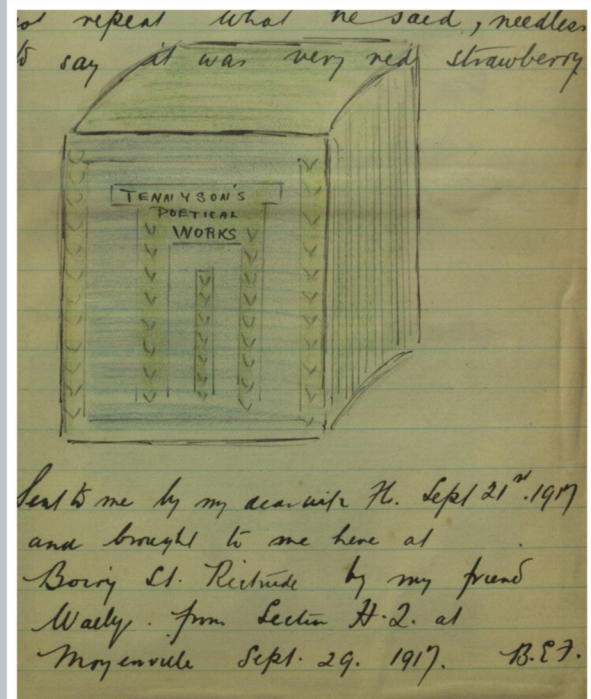 not repeat what he said, needless
to say it was very red strawberry
TENNYSON'S
POETICAL
WORKS
Sent to me by my dear wife H. Sept 21st. 1917
and brought to me here at
Boiry St. Rictrude by my friend
Wally. from Section H.Q. at
Moyenville Sept. 29. 1917. B.E.F.